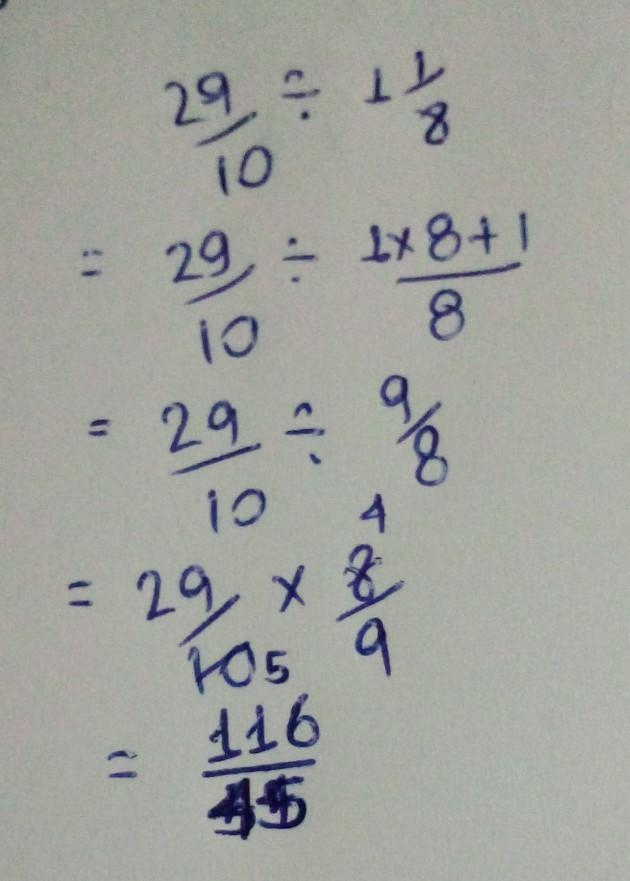 29/10 ÷ 1 1/8
= 29/10 ÷ 1×8+1/8
= 29/10 ÷ 9/8
= 29/10 5 × 4 8/9
= 116/45